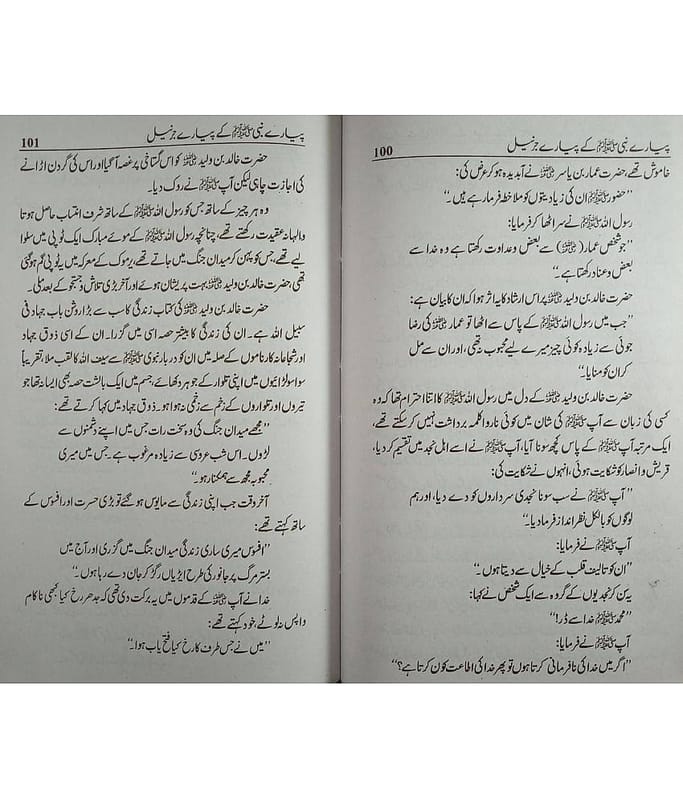 پیارے نبی ﷺ کے پیارے جرنیل 100
خاموش تھے، حضرت عمار بن یاسر رضی اللہ عنہ نے آبدیدہ ہو کر عرض کی:
”حضور ﷺ ان کی زیادیتوں کو ملاحظہ فرما رہے ہیں۔“
رسول اللہ ﷺ نے سر اٹھا کر فرمایا:
”جو شخص عمار (رضی اللہ عنہ) سے بغض و عداوت رکھتا ہے وہ خدا سے
بغض و عناد رکھتا ہے۔“
حضرت خالد بن ولید رضی اللہ عنہ پر اس ارشاد کا یہ اثر ہوا کہ ان کا بیان ہے:
”جب میں رسول اللہ ﷺ کے پاس سے اٹھا تو عمار رضی اللہ عنہ کی رضا
جوئی سے زیادہ کوئی چیز میرے لیے محبوب نہ تھی، اور ان سے مل
کر ان کو منایا۔“
حضرت خالد بن ولید رضی اللہ عنہ کے دل میں رسول اللہ ﷺ کا اتنا احترام تھا کہ وہ
کسی کی زبان سے آپ ﷺ کی شان میں کوئی ناروا کلمہ برداشت نہیں کر سکتے تھے،
ایک مرتبہ آپ ﷺ کے پاس کچھ سونا آیا، آپ ﷺ نے اسے اہل نجد میں تقسیم کر دیا،
قریش و انصار کو شکایت ہوئی، انہوں نے شکایت کی:
”آپ ﷺ نے سب سونا نجدی سرداروں کو دے دیا، اور ہم
لوگوں کو بالکل نظر انداز فرما دیا۔“
آپ ﷺ نے فرمایا:
”ان کو تالیف قلب کے خیال سے دیتا ہوں۔“
یہ سن کر نجدیوں کے گروہ سے ایک شخص نے کہا:
”محمد ﷺ خدا سے ڈر!“
آپ ﷺ نے فرمایا:
”اگر میں خدا کی نافرمانی کرتا ہوں تو پھر خدا کی اطاعت کون کرتا ہے؟“
پیارے نبی ﷺ کے پیارے جرنیل 101
حضرت خالد بن ولید رضی اللہ عنہ کو اس گستاخی پر غصہ آ گیا اور اس کی گردن اڑانے
کی اجازت چاہی لیکن آپ ﷺ نے روک دیا۔
وہ ہر چیز کے ساتھ جس کو رسول اللہ ﷺ کے ساتھ شرف انتساب حاصل ہوتا
والہانہ عقیدت رکھتے تھے، چنانچہ رسول اللہ ﷺ کے موئے مبارک ایک ٹوپی میں سلوا
لیے تھے، جس کو پہن کر میدان جنگ میں جاتے تھے، یرموک کے معرکہ میں یہ ٹوپی گم ہو گئی
تھی، حضرت خالد بن ولید رضی اللہ عنہ بہت پریشان ہوئے اور آخر بڑی تلاش و جستجو کے بعد ملی۔
حضرت خالد بن ولید رضی اللہ عنہ کی کتاب زندگی کا سب سے بڑا روشن باب جہاد فی
سبیل اللہ ہے۔ ان کی زندگی کا بیشتر حصہ اسی میں گزرا۔ ان کے اسی ذوق جہاد
اور شجاعانہ کارناموں کے صلہ میں ان کو دربار نبوی ﷺ سے سیف اللہ کا لقب ملا، تقریباً
سوا سو لڑائیوں میں اپنی تلوار کے جوہر دکھائے، جسم میں ایک بالشت حصہ بھی ایسا نہ تھا جو
تیروں اور تلواروں کے زخم سے زخمی نہ ہوا ہو۔ ذوق جہاد میں کہا کرتے تھے:
”مجھے میدان جنگ کی وہ سخت رات جس میں اپنے دشمنوں سے
لڑوں۔ اس شب عروسی سے زیادہ مرغوب ہے۔ جس میں میری
محبوبہ مجھ سے ہمکنار ہو۔“
آخر وقت جب اپنی زندگی سے مایوس ہو گئے تو بڑی حسرت اور افسوس کے
ساتھ کہتے تھے:
”افسوس میری ساری زندگی میدان جنگ میں گزری اور آج میں
بستر مرگ پر جانور کی طرح ایڑیاں رگڑ کر جان دے رہا ہوں۔“
خدا نے آپ رضی اللہ عنہ کے قدموں میں یہ برکت دی تھی کہ جدھر رخ کیا کبھی ناکام
واپس نہ لوٹے، خود کہتے تھے:
”میں نے جس طرف کا رخ کیا فتح یاب ہوا۔“